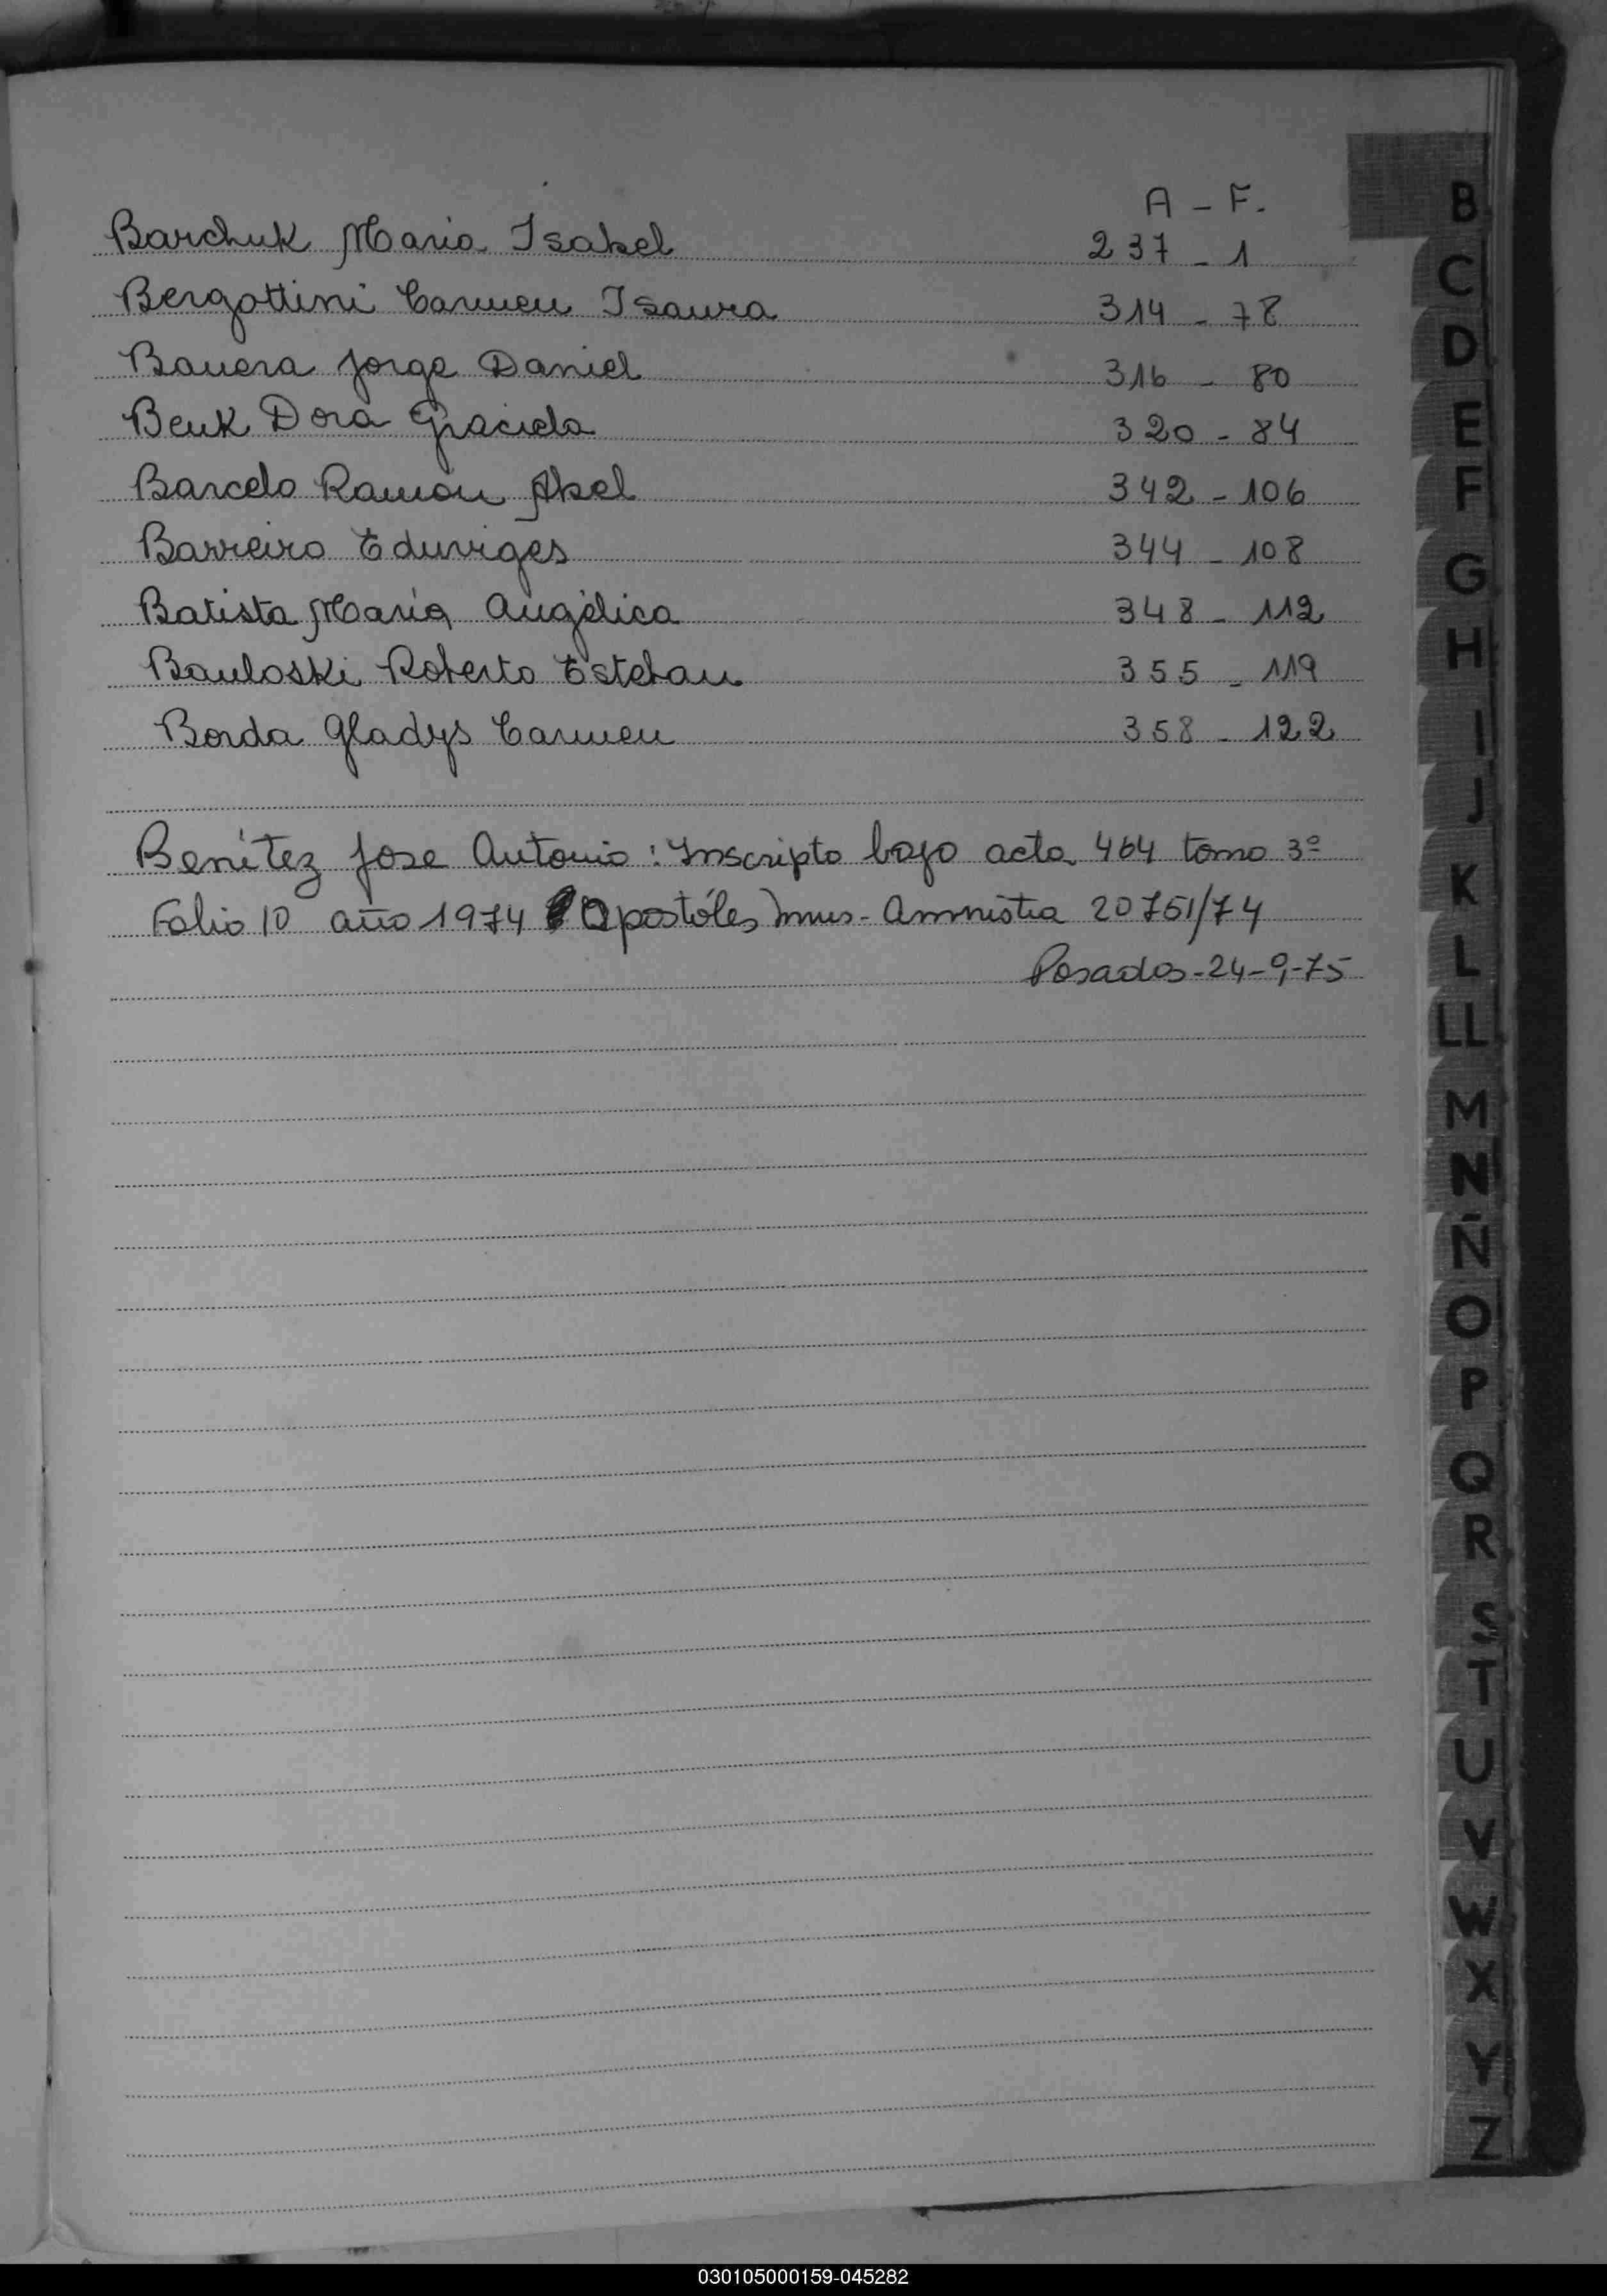 A - F.
Barchuk Maria Isabel 237 - 1
Bergottini Carmen Isaura 314 - 78
Bauera Jorge Daniel 316 - 80
Beuk Dora Graciela 320 - 84
Barcelo Ramón Abel 342 - 106
Barreiro Eduviges 344 - 108
Batista María Angélica 348 - 112
Bauloski Roberto Esteban 355 - 119
Borda Gladys Carmen 358 - 122
Benítez Jose Antonio : Inscripto bajo acta 464 tomo 3º
Folio 10 año 1974 Apostóles Mnes - Amnistia 20751/74
Posadas - 24-9-75
B
C
D
E
F
G
H
I
J
K
L
LL
M
N
Ñ
O
P
Q
R
S
T
U
V
W
X
Y
Z
030105000159-045282